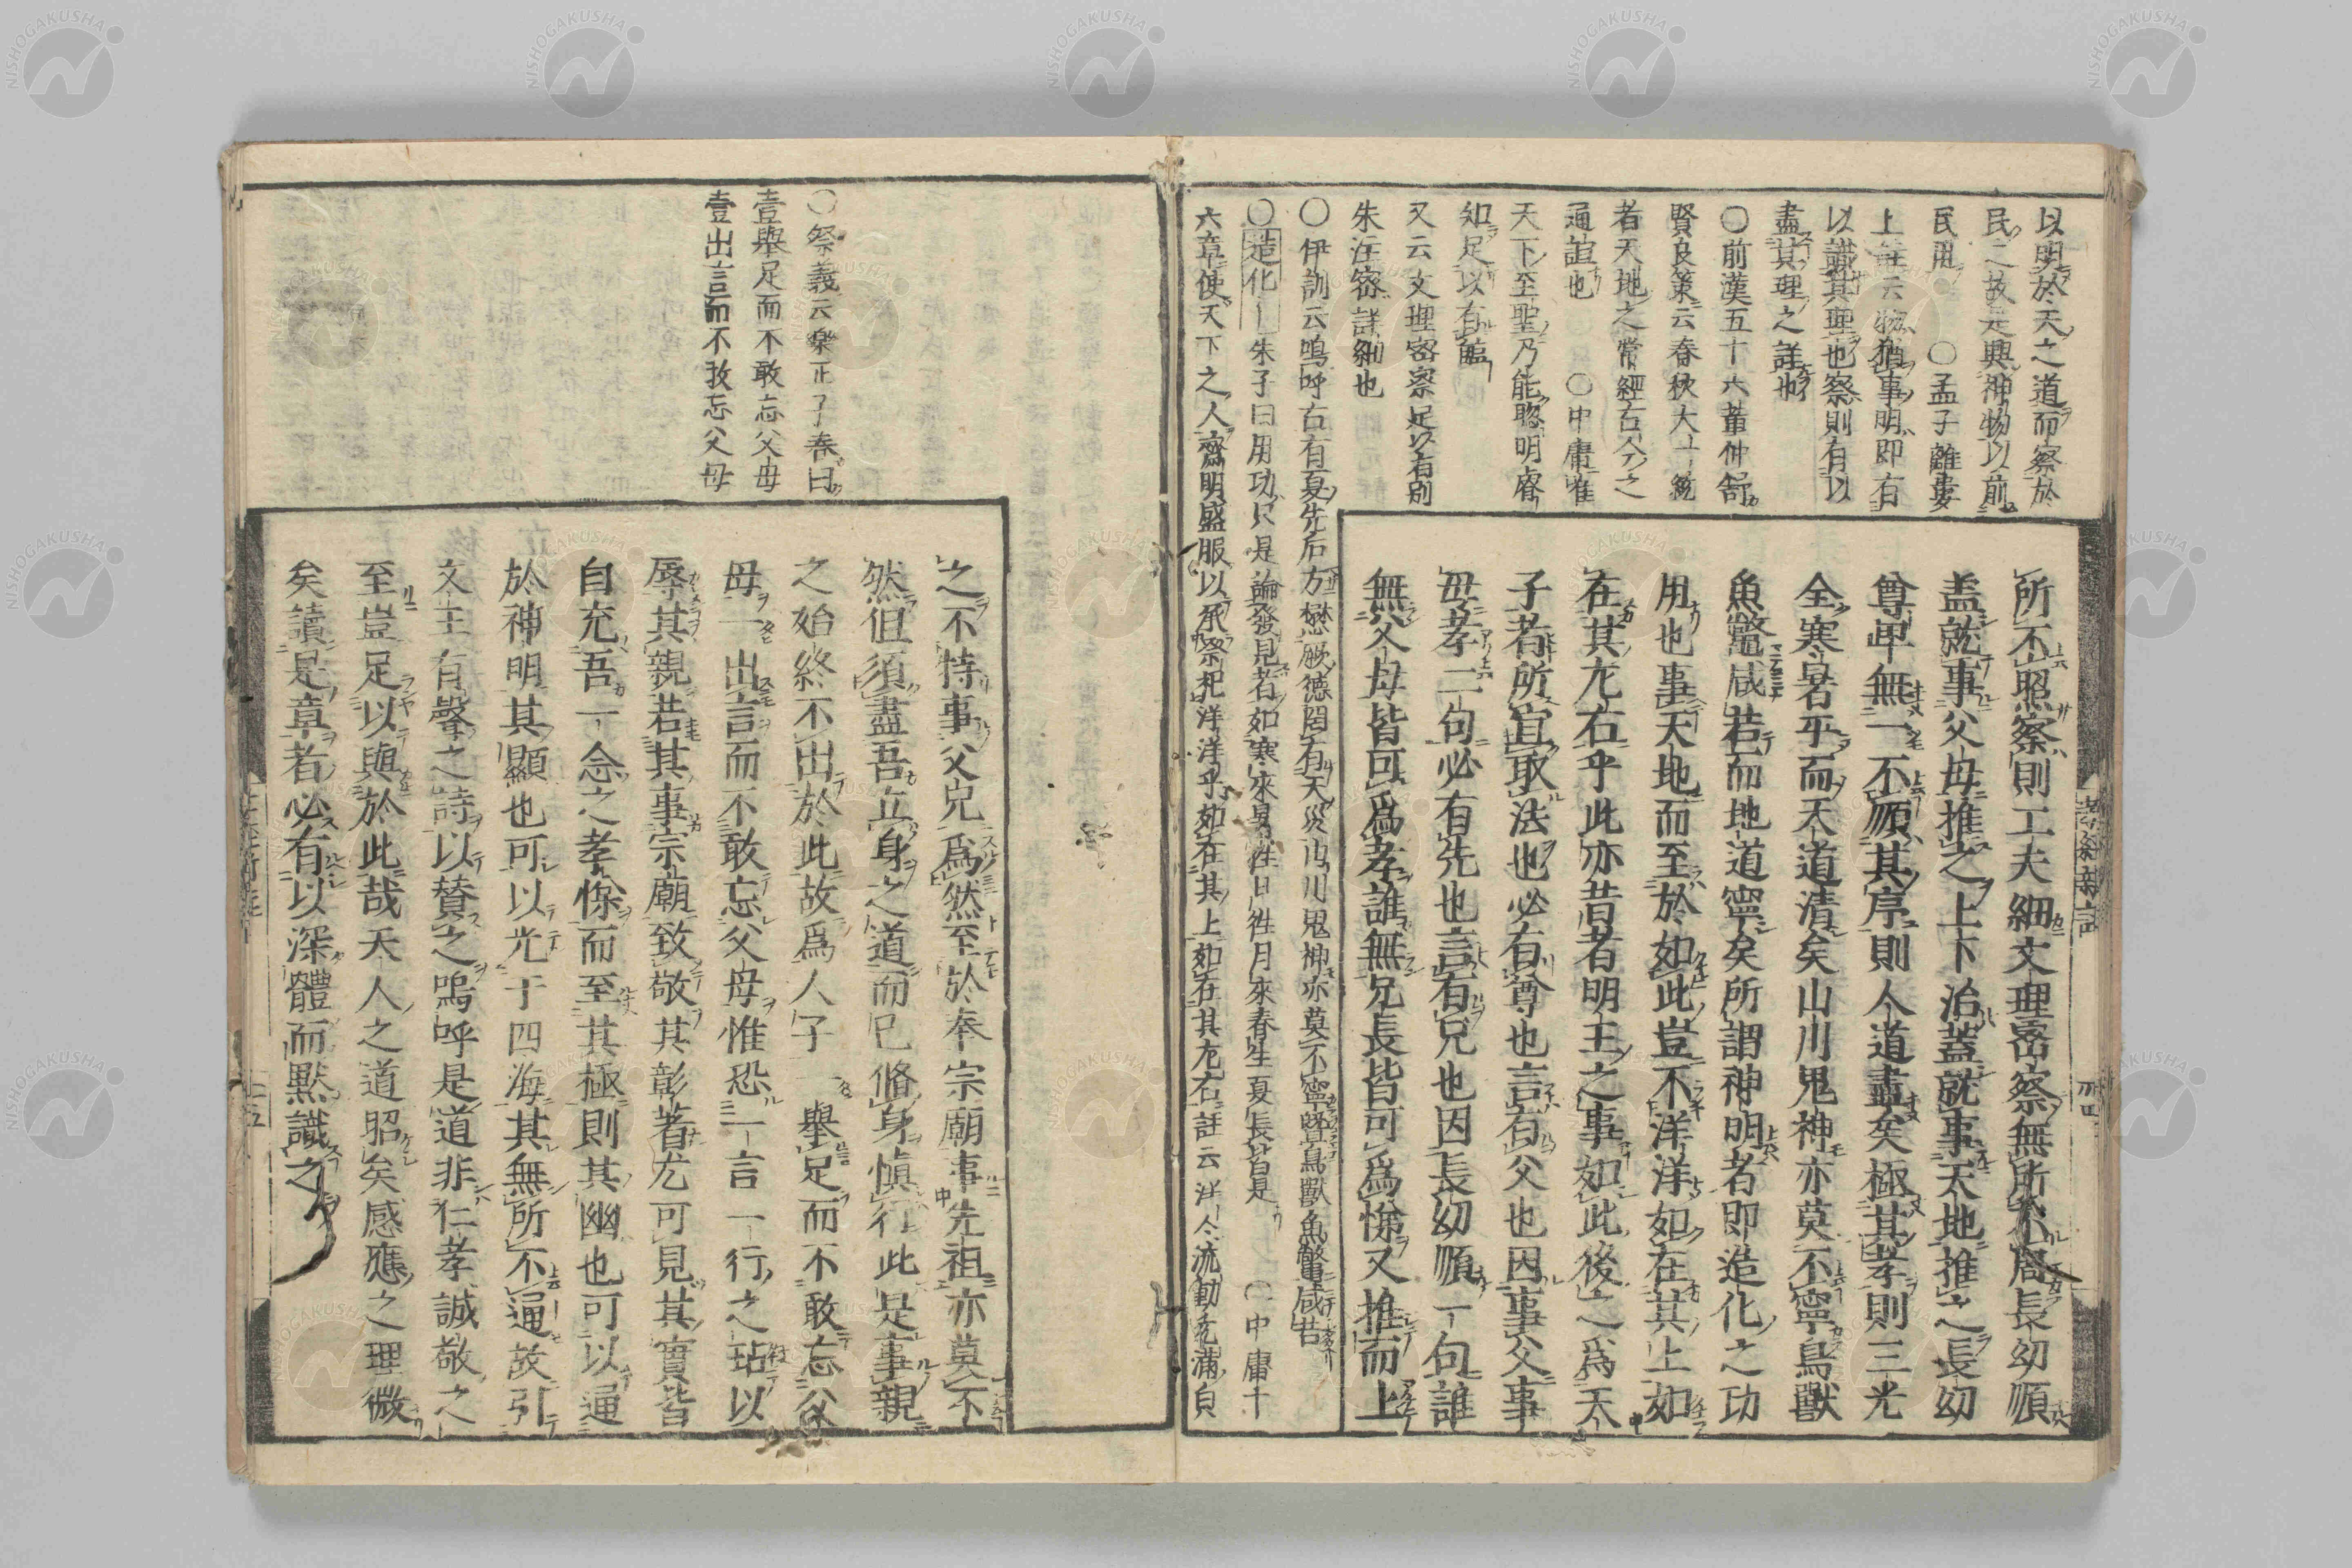 以明於天之道而察於
民之故是興神物以前
民用 ○孟子離婁
上註云物猶事明即有
以識其理也察則有以
盡其理之詳也
○前漢五十六董仲舒
賢良策云春秋大一統
者天地之常經古今之
通誼也 ○中庸唯
天下至聖乃能聰明睿
知足以有臨
又云文理密察足以有別
朱注密詳細也
○伊訓云嗚呼古有夏先后方懋厥德罔有天災山川鬼神亦莫不寧曁鳥獸魚鼈咸若
○造化 朱子曰用功只是論發見者如寒來暑往日往月來春生夏長皆是 ○中庸十
六章使天下之人齋明盛服以承祭祀洋洋乎如在其上如在其左右註云洋今流動充滿貞
所不照察則工夫細文理密察無所不周長幼順
盡就事父母推之上下治蓋就事天地推之長幼
尊卑無一不順其序則人道盡矣極其孝則三光
全寒暑平而天道清矣山川鬼神亦莫不寧鳥獸
魚鼈咸若而地道寧矣所謂神明者即造化之功
用也事天地而至於如此豈不洋洋如在其上如
在其左右乎此亦昔者明王之事如此後之爲天
子者所宜取法也必有尊也言有父也因事父事
母孝二句必有先也言有兄也因長幼順一句誰
無父母皆可爲孝誰無兄長皆可爲悌又推而上
之不特事父兄爲然至於奉宗廟事先祖亦莫不
然但須盡吾立身之道而已脩身愼行此是事親
之始終不出於此故爲人子一舉足而不敢忘父
母一出言而不敢忘父母惟恐一言一行之玷以
辱其親若其事宗廟致敬其彰著尤可見其實皆
自充吾一念之孝悌而至其極則其幽也可以通
於神明其顯也可以光于四海其無所不通故引
文王有聲之詩以賛之嗚呼是道非仁孝誠敬之
至豈足以與於此哉天人之道昭矣感應之理微
矣讀是章者必有以深體而黙識之
○祭義云樂正子春曰
壹舉足而不敢忘父母
壹出言而不敢忘父母